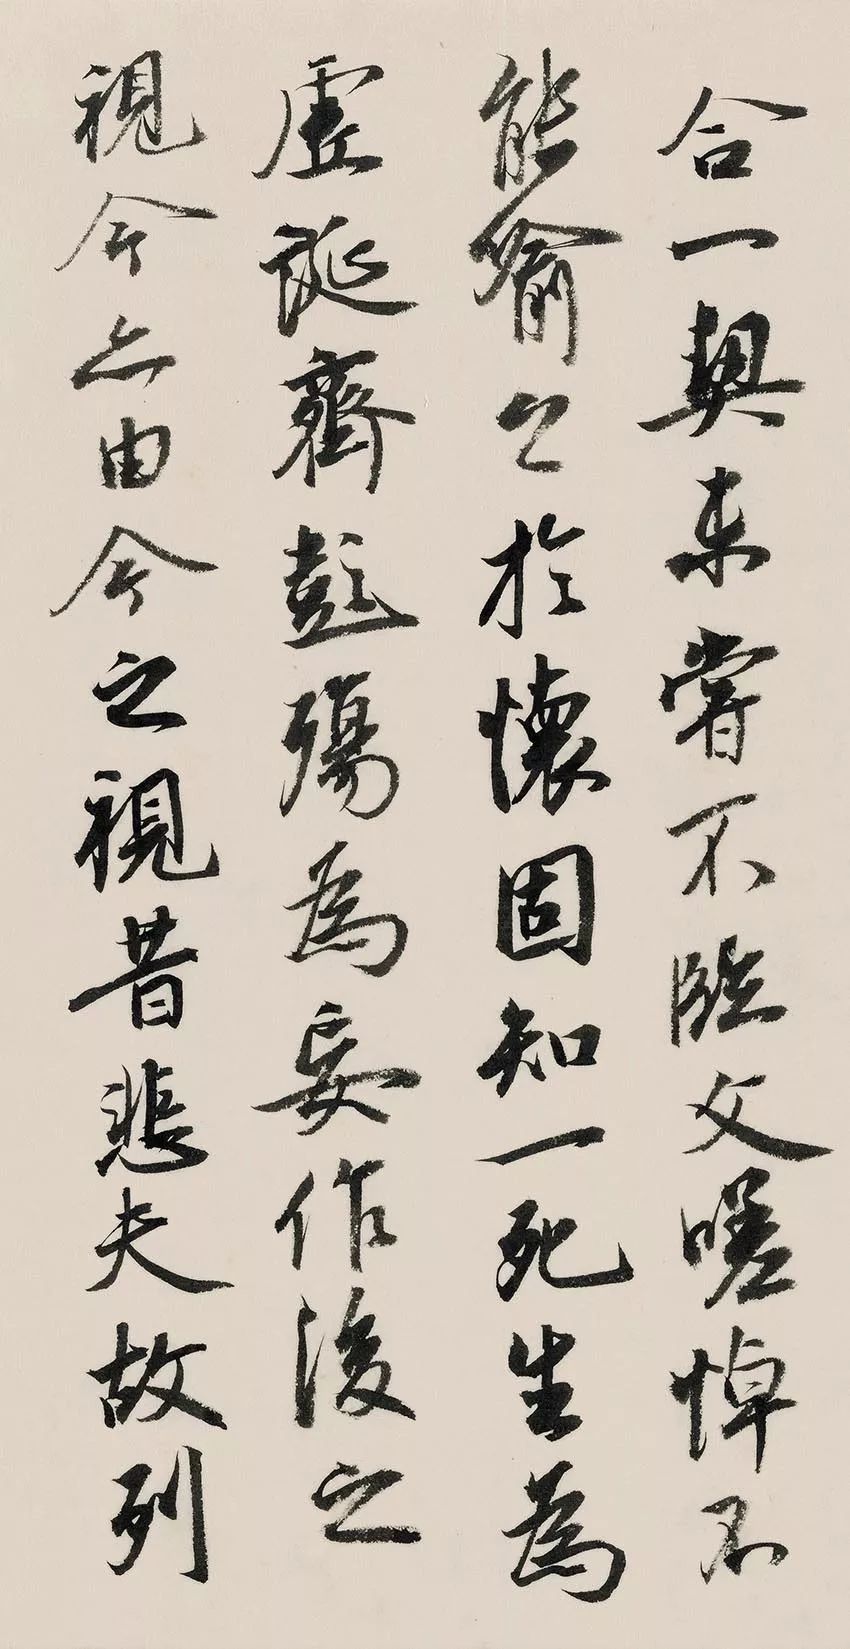 合一契未嘗不臨文嗟悼不
能喻之於懷固知一死生為
虛誕齊彭殤為妄作後之
視今亦由今之視昔悲夫故列